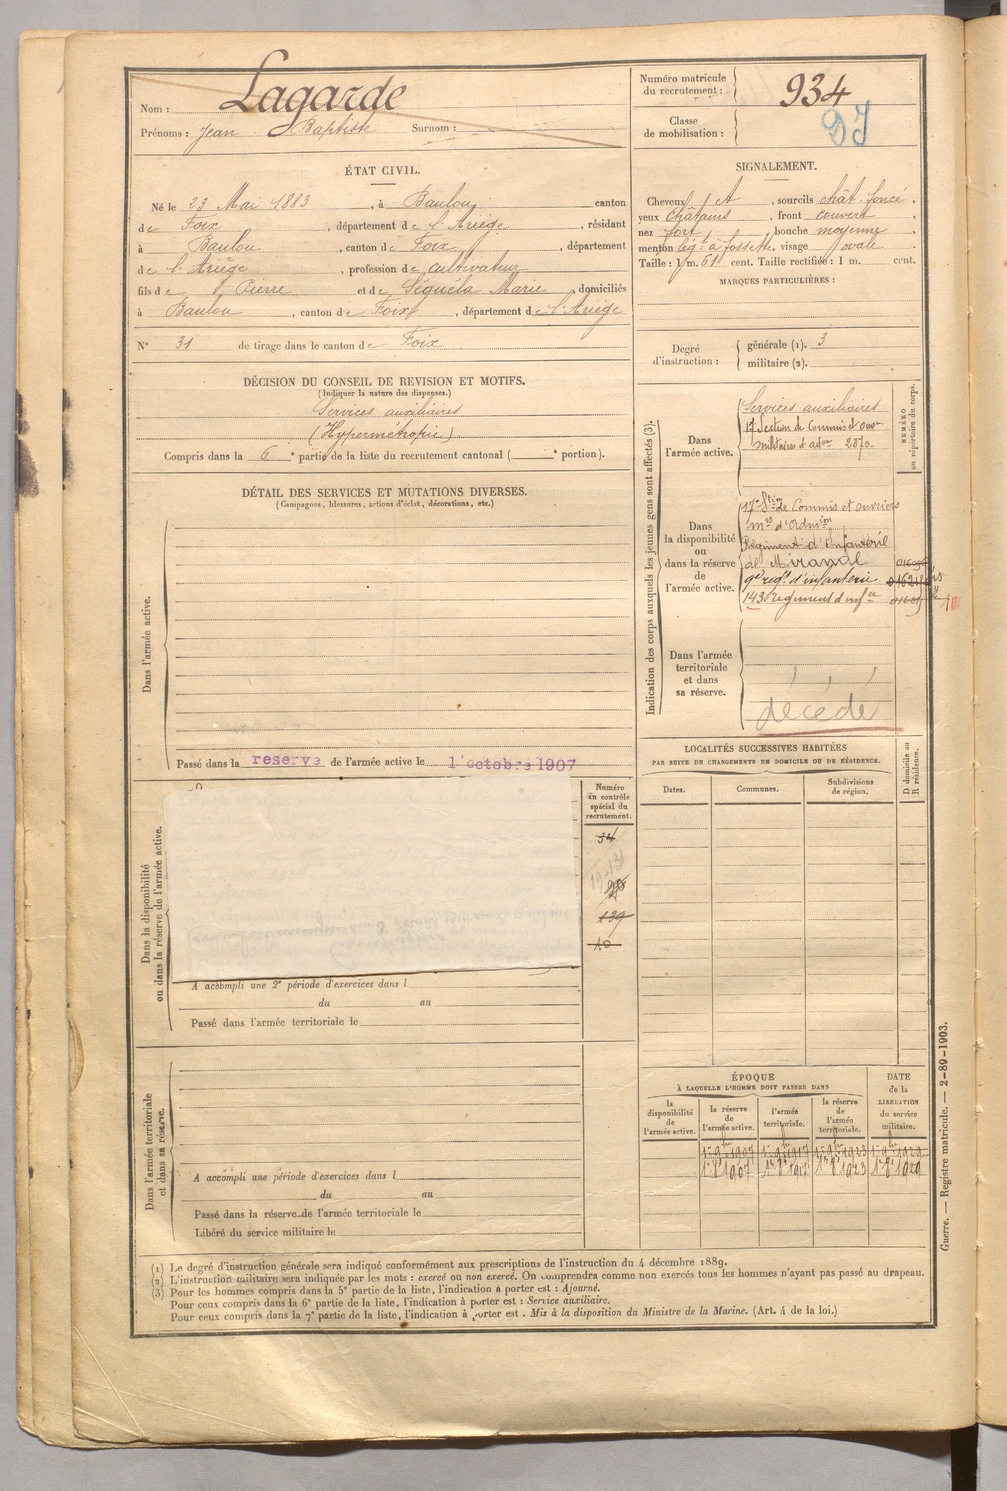 Nom : Lagarde
Prénoms : Jean Baptiste Surnom :
Numéro matricule du recrutement : 934
Classe de mobilisation :
ÉTAT CIVIL.
Né le 23 Mai 1883, à Baulou, canton
de Foix, département de l'Ariège, résidant
à Baulou, canton de Foix, département
de l'Ariège, profession de cultivateur
fils de Pierre et de Séguéla Marie, domiciliés
à Baulou, canton de Foix, département de l'Ariège
N° 31 de tirage dans le canton de Foix
SIGNALEMENT.
Cheveux, sourcils chât. foncé,
yeux châtains, front couvert,
nez fort, bouche moyenne,
menton lég.t à fossette, visage ovale.
Taille : 1 m. 61 cent. Taille rectifiée : 1 m. cent.
MARQUES PARTICULIÈRES :
Degré d'instruction :
générale (1). 3
militaire (2).
DÉCISION DU CONSEIL DE REVISION ET MOTIFS.
(Indiquer la nature des dispenses.)
Services auxiliaires
(Hypermétropie)
Compris dans la 6e partie de la liste du recrutement cantonal ( e portion).
DÉTAIL DES SERVICES ET MUTATIONS DIVERSES.
(Campagnes, blessures, actions d'éclat, décorations, etc.)
Dans l'armée active.
Passé dans la réserve de l'armée active le 1 octobre 1907
Indication des corps auxquels les jeunes gens sont affectés (3).
NUMÉRO au répertoire du corps.
Dans l'armée active.
Services auxiliaires
17 Section de Commis et ouv.
militaires d'ad.on 2870.
Dans la disponibilité ou dans la réserve de l'armée active.
17e S.tion de Commis et ouvriers
m.res d'Adm.ion
Régiment d'Infanterie
de Mirande
9e rég.t d'infanterie
143 Régiment d'inf.ie
Dans l'armée territoriale et dans sa réserve.
décédé
LOCALITÉS SUCCESSIVES HABITÉES
PAR SUITE DE CHANGEMENTS DE DOMICILE OU DE RÉSIDENCE.
Dates. Communes. Subdivisions de région. D domicile ou R résidence.
Dans la disponibilité ou dans la réserve de l'armée active.
Numéro au contrôle spécial du recrutement.
34
139
10
A accompli une 2e période d'exercices dans l
du au
Passé dans l'armée territoriale le
Dans l'armée territoriale et dans sa réserve.
A accompli une période d'exercices dans l
du au
Passé dans la réserve de l'armée territoriale le
Libéré du service militaire le
ÉPOQUE
À LAQUELLE L'HOMME DOIT PASSER DANS
la disponibilité de l'armée active.
la réserve de l'armée active.
l'armée territoriale.
la réserve de l'armée territoriale.
DATE de la LIBÉRATION du service militaire.
(1) Le degré d'instruction générale sera indiqué conformément aux prescriptions de l'instruction du 4 décembre 1889.
(2) L'instruction militaire sera indiquée par les mots : exercé ou non exercé. On comprendra comme non exercés tous les hommes n'ayant pas passé au drapeau.
(3) Pour les hommes compris dans la 5e partie de la liste, l'indication à porter est : Ajourné.
Pour ceux compris dans la 6e partie de la liste, l'indication à porter est : Service auxiliaire.
Pour ceux compris dans la 7e partie de la liste, l'indication à porter est . Mis à la disposition du Ministre de la Marine. (Art. 4 de la loi.)
Guerre. — Registre matricule. — 2-89-1903.